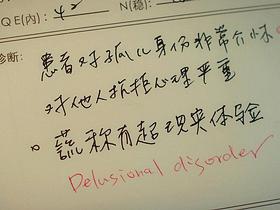 QE(内): 42 N(稳):
诊断: 患者对孤儿身份非常介怀
对他人抗拒心理严重
。谎称有超现实体验
Delusional disorder